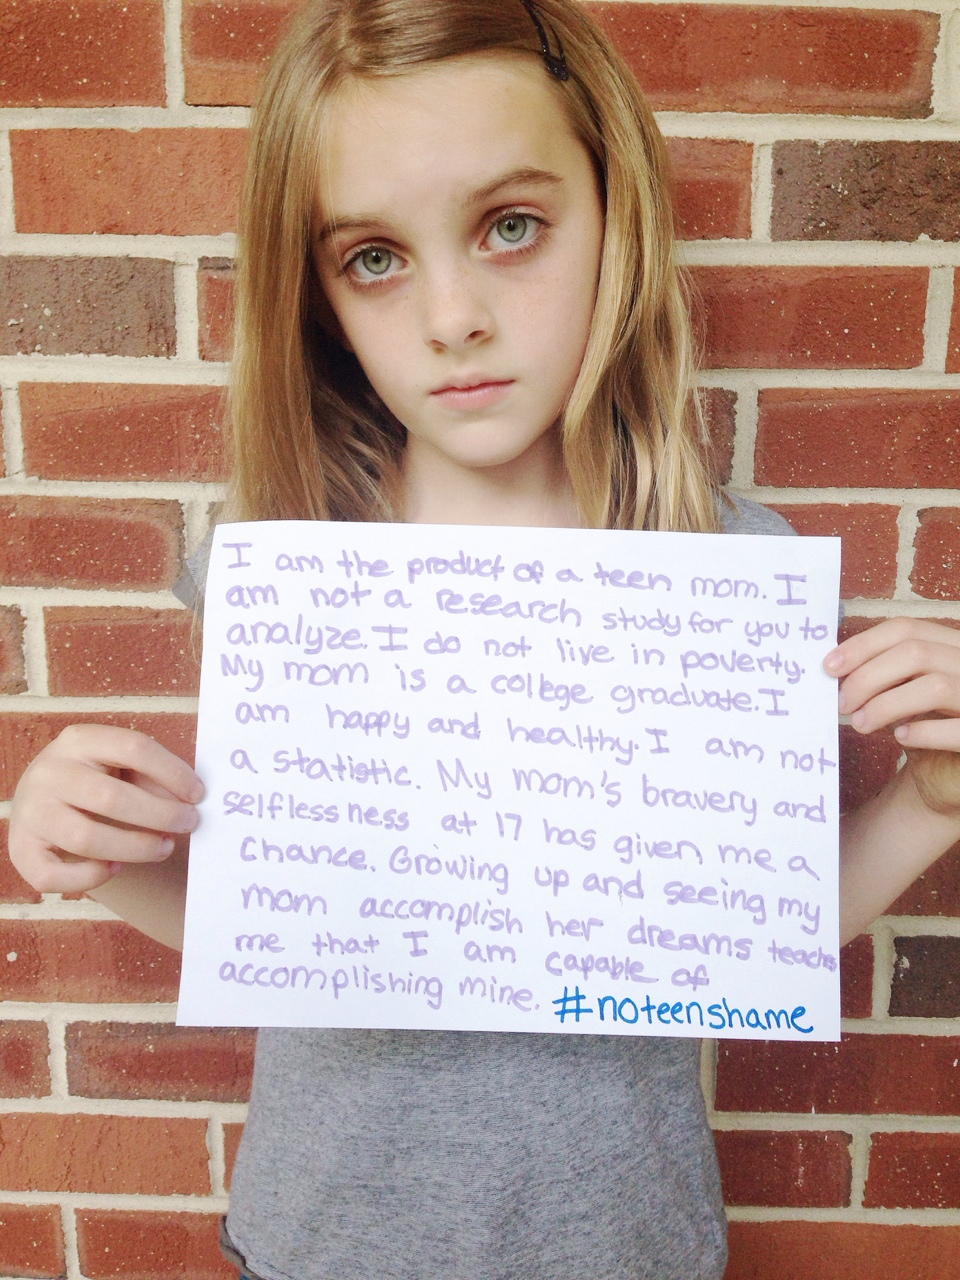 I am the product of a teen mom. I
am not a research study for you to
analyze. I do not live in poverty.
My mom is a college graduate. I
am happy and healthy. I am not
a statistic. My mom's bravery and
selflessness at 17 has given me a
Chance. Growing up and seeing my
mom accomplish her dreams teaches
me that I am capable of
accomplishing mine. #noteenshame